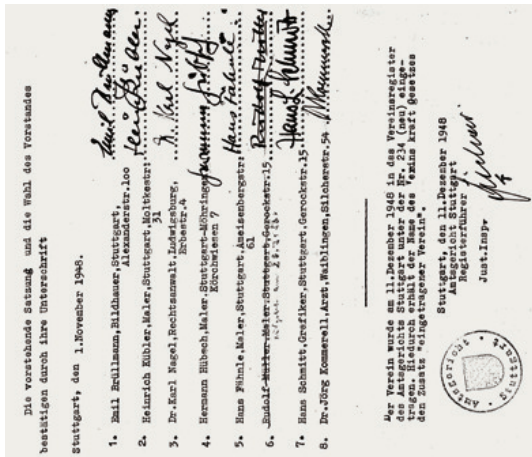 Die vorstehende Satzung und die Wahl des Vorstandes
bestätigen durch ihre Unterschrift
Stuttgart, den 1.November 1948.
1. Emil Brüllmann,Bildhauer,Stuttgart,
Alexanderstr.100
2. Heinrich Kübler,Maler,Stuttgart,Moltkestr:
31
3. Dr.Karl Nagel,Rechtsanwalt,Ludwigsburg,
Erbestr.4
4. Hermann Hübech,Maler.Stuttgart-Möhringen
Körchwiesen 7
5. Hans Fähnle,Maler,Stuttgart,Ameisenbergstr:
61
6. Rudolf Müller,Maler,Stuttgart,Gerockstr.15
7. Hans Schmitt,Grafiker,Stuttgart,Gerockstr.15
8. Dr.Jörg Kommerell,Arzt,Waiblingen,Silcherstr.54
Der Verein wurde am 11.Dezember 1948 in das Vereinsregister
des Amtsgerichts Stuttgart unter der Nr. 234 (neu) einge-
tragen. Hiedurch erhält der Name des Vereins kraft Gesetzes
den Zusatz "eingetragener Verein".
Stuttgart, den 11.Dezember 1948
Amtsgericht Stuttgart
Registerführer
Just.Insp.
Amtsgericht Stuttgart